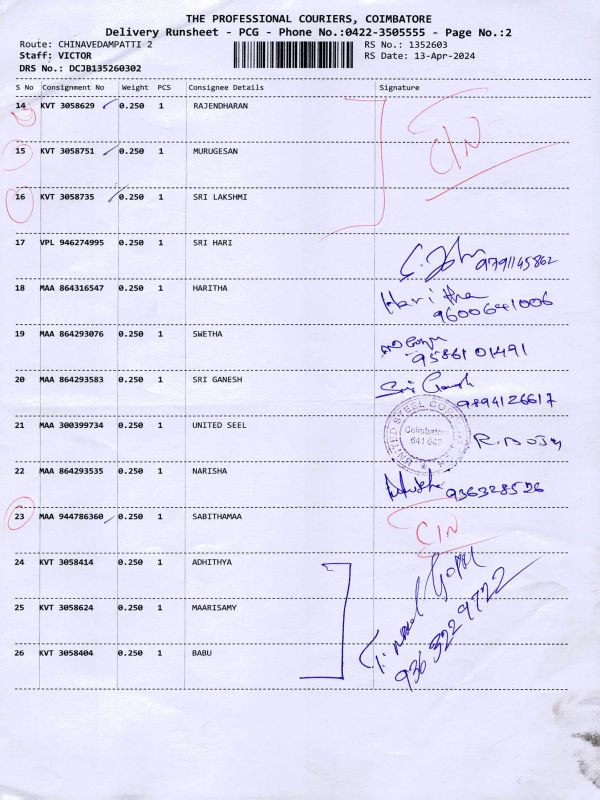 THE PROFESSIONAL COURIERS, COIMBATORE
Delivery Runsheet - PCG - Phone No.:0422-3505555 - Page No.:2
Route: CHINAVEDAMPATTI 2 RS No.: 1352603
Staff: VICTOR RS Date: 13-Apr-2024
DRS No.: DCJB135260302
S No Consignment No Weight PCS Consignee Details Signature
14 KVT 3058629 0.250 1 RAJENDHARAN
C/N
15 KVT 3058751 0.250 1 MURUGESAN
16 KVT 3058735 0.250 1 SRI LAKSHMI
17 VPL 946274995 0.250 1 SRI HARI
9791145862
18 MAA 864316547 0.250 1 HARITHA Haritha
9600641006
19 MAA 864293076 0.250 1 SWETHA
95861 01491
20 MAA 864293583 0.250 1 SRI GANESH Sri Ganesh
9894126617
21 MAA 300399734 0.250 1 UNITED SEEL UNITED STEEL
Coimbatore
641 049
22 MAA 864293535 0.250 1 NARISHA
936328526
23 MAA 944786360 0.250 1 SABITHAMAA C/N
24 KVT 3058414 0.250 1 ADHITHYA
25 KVT 3058624 0.250 1 MAARISAMY
9363229722
26 KVT 3058404 0.250 1 BABU